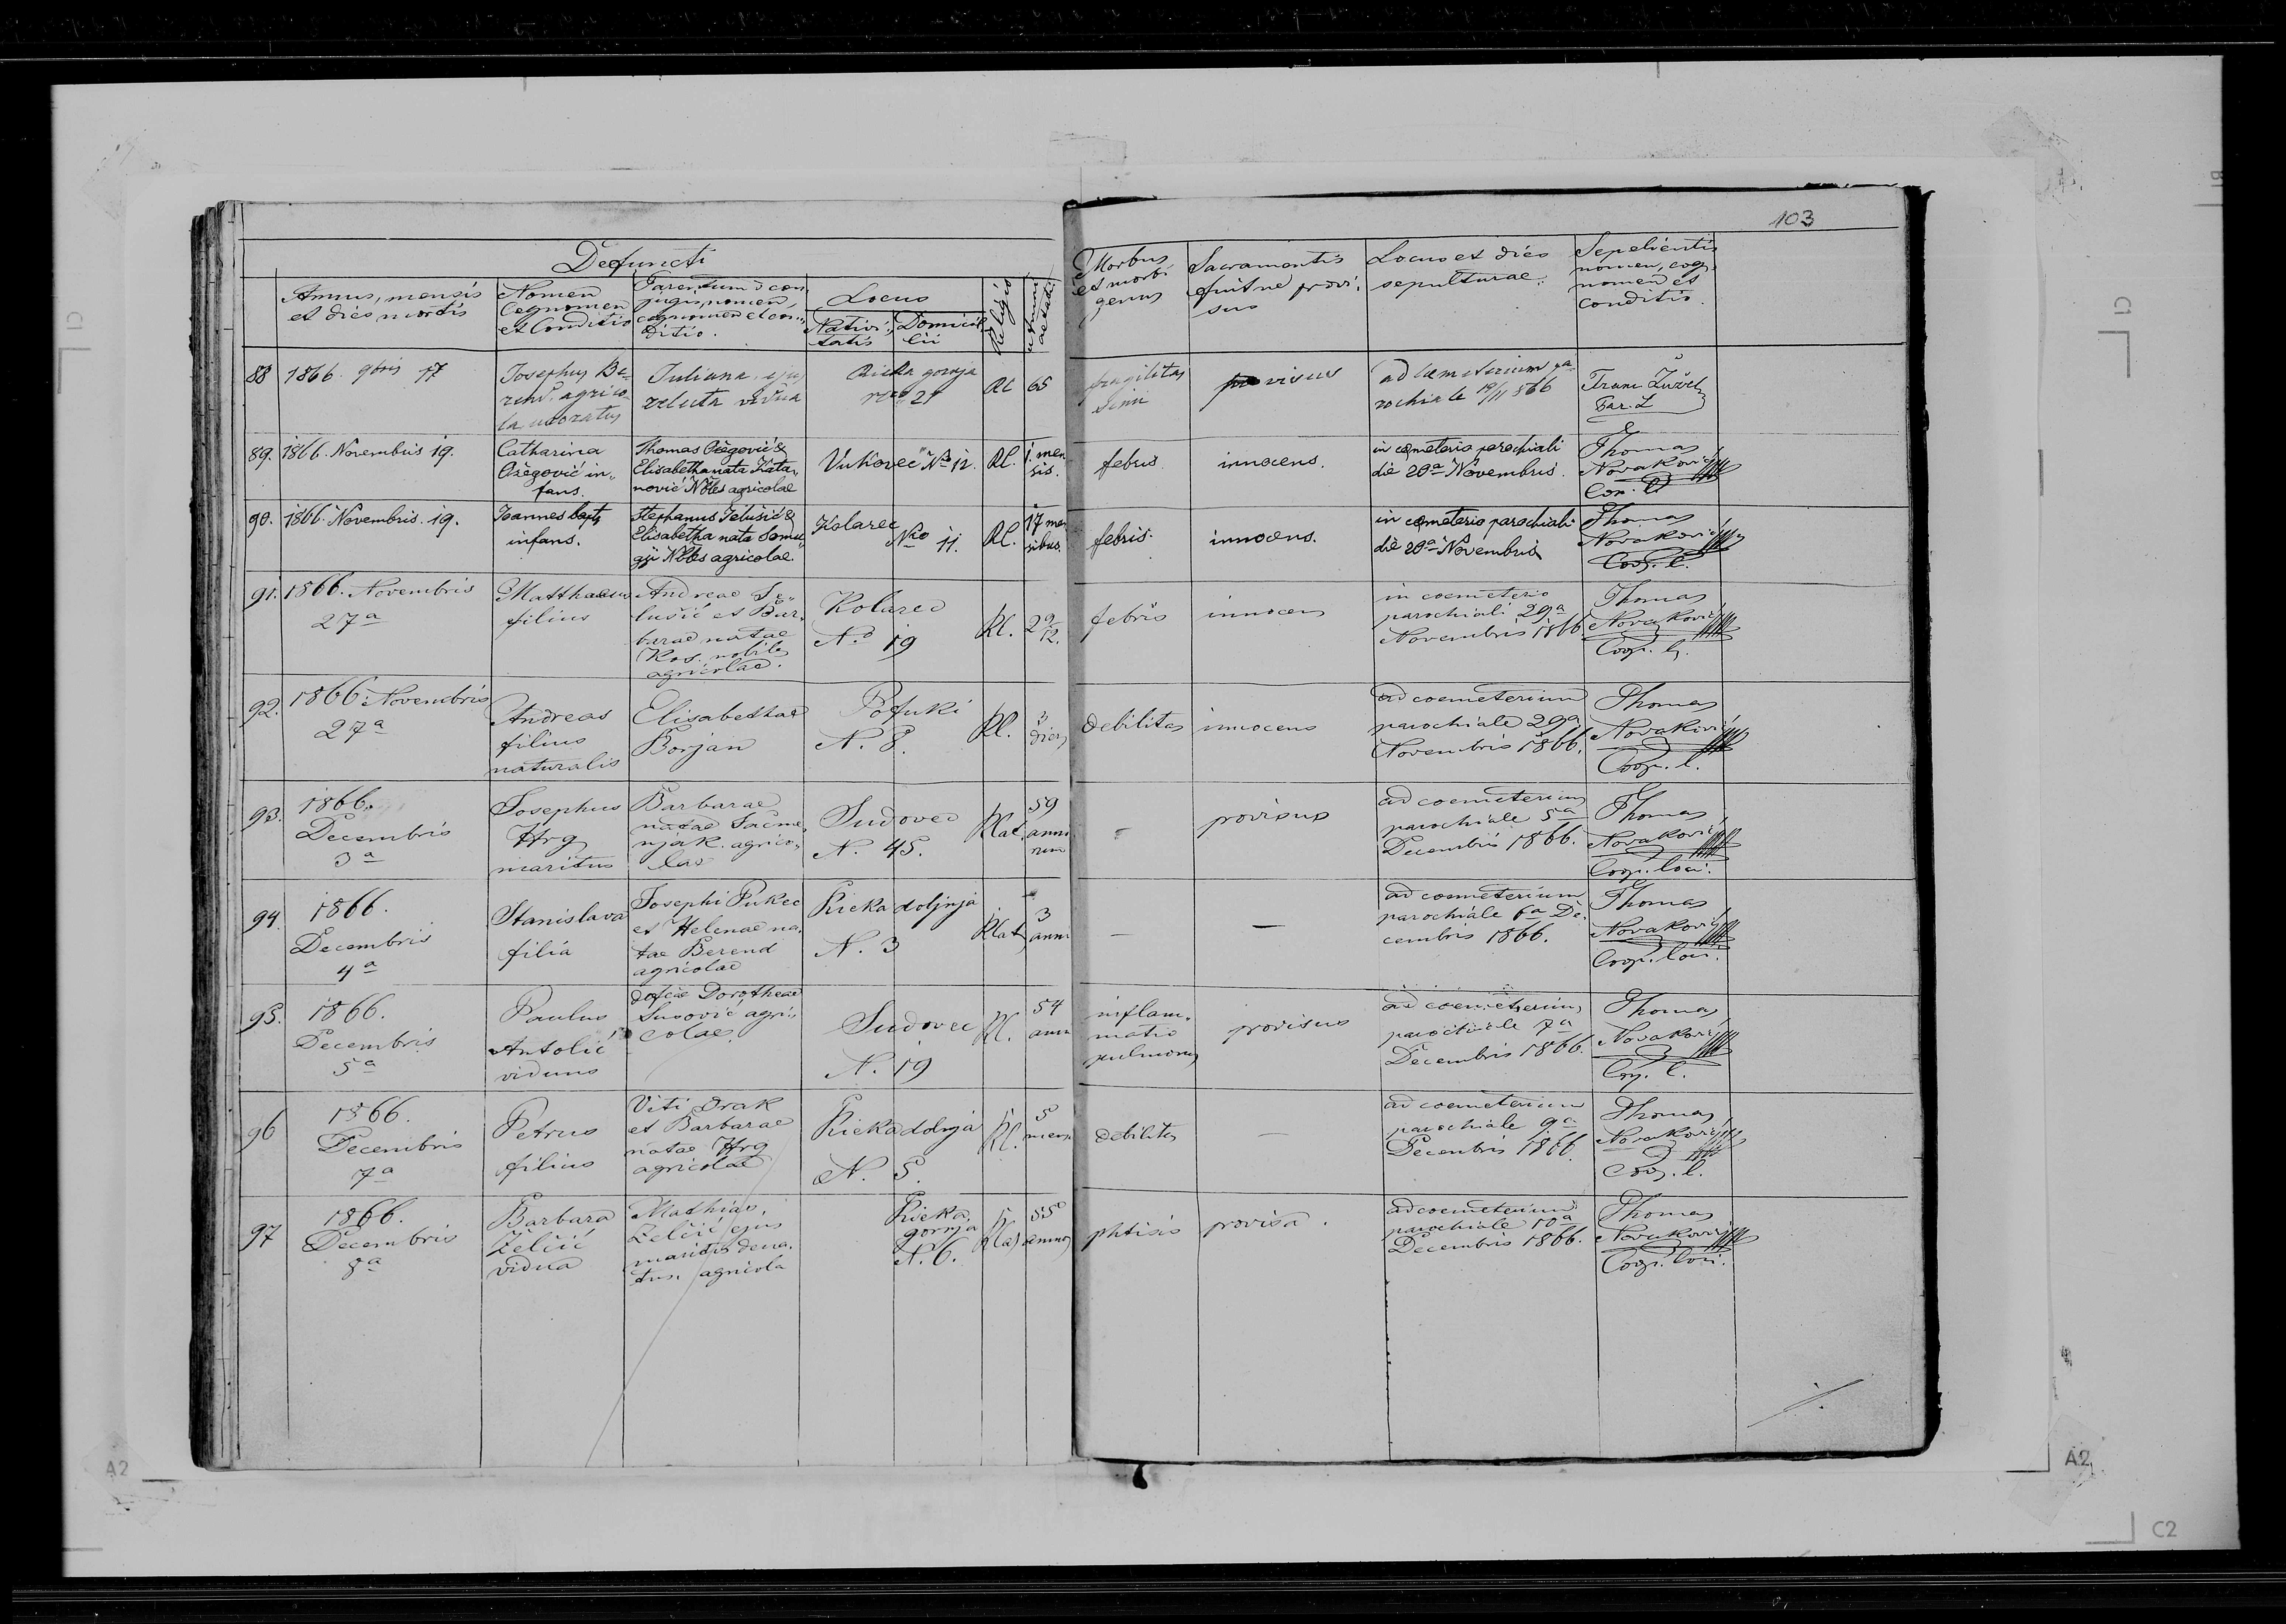 103
Defuncti
Annus, mensis
et dies mortis
Nomen
Cognomen
et Conditio
Parentum v conjugis, nomen,
cognomen et conditio.
Locus
Nativitatis
Domicilii
Religio
Annus aetatis
Morbus
et morbi
genus
Sacramentis
fuitne provisus
Locus et dies
sepulturae.
Sepelientis
nomen, cognomen et
conditio.
88 1866 9bris 17
Josephus Berend agricola uxoratus
Juliana ejus
relicta vidua
Rieka gornja
21
Rl
65
fragilitas
provisus
ad cemeterium parochiale 19/11 866
Par. L
89. 1866. Novembris 19.
Catharina
Ožegović infans.
Thomas Ožegović &
Elisabetha nata Katanović Nobles agricolae
Vukovec No 12.
Rl.
1. mensis.
febris
innocens.
in cemeterio parochiali
die 20a Novembris.
Thomas
Novaković
Coo. l.
90. 1866. Novembris. 19.
Joannes bapts
infans.
Stephanus Jelušić &
Elisabetha nata Somogji Nobles agricolae.
Kolarec
Nro 11.
Rl.
17 mensibus.
febris
innocens.
in cemeterio parochiali
die 20a Novembris
Thomas
Novaković
Coop. l.
91. 1866. Novembris
27a
Matthaeus
filius
Andreae Jelušić et Barbarae natae
Kos. nobiles
agricolae.
Kolarec
No 19
Rl.
2 9/12.
febris
innocens
in coemeterio
parochiali 29a
Novembris 1866.
Thomas
Novaković
Coop. l.
92. 1866. Novembris
27a
Andreas
filius
naturalis
Elisabethae
Borjan
Pofuki
N. 8.
Rl.
3
dies
debilitas
innocens
ad coemeterium
parochiale 29a
Novembris 1866.
Thomas
Novaković
Coop. l.
93. 1866.
Decembris
3a
Josephus
Hrg
maritus
Barbarae
natae Sačmenjak. agricolas
Sudovec
N. 45.
Rlat.
59
annorum
-
provisus
ad coemeterium
parochiale 5a
Decembris 1866.
Thomas
Novaković
Coop. loci.
94. 1866.
Decembris
4a
Stanislava
filia
Josephi Pukec
et Helenae natae Berend
agricolae
Rieka doljnja
N. 3
Rlat
3
anni
—
—
ad coemeterium
parochiale 6a Decembris 1866.
Thomas
Novaković
Coop. loci.
95. 1866.
Decembris
5a
Paulus
Antolić
viduus
Dorotheae
agricolae.
Sudovec
N. 19
Rl.
54
ann
inflammatio
pulmonum
provisus
ad coemeterium
parochiale 7a
Decembris 1866.
Thomas
Novaković
Coop. l.
96 1866.
Decembris
7a
Petrus
filius
Viti Drak
et Barbarae
natae Hrg
agricolae
Rieka dolnja
N. 5.
Rl.
5
mens
debilitas
—
ad coemeterium
parochiale 9a
Decembris 1866.
Thomas
Novaković
Coop. l.
97 1866.
Decembris
8a
Barbara
Želčić
vidua
Mathias
Želčić ejus
maritus denatus. agricola
Rieka
gornja
N. 6.
Rlat
55
annos
phtisis
provisa.
ad coemeterium
parochiale 10a
Decembris 1866.
Thomas
Novaković
Coop. loci.
C1
C1
A2
A2
C2
B1